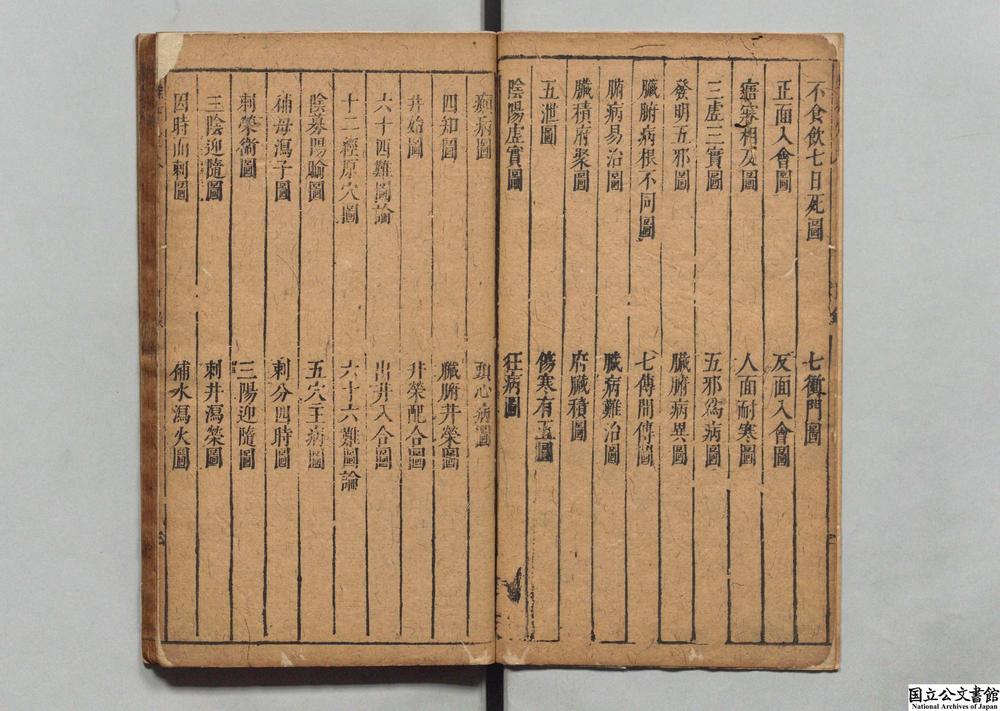 不食飲七日死圖　七衝門圖
正面入會圖　反面入會圖
寒相反圖　人面耐寒圖
三虛三實圖　五邪爲病圖
發明五邪圖　臟腑病異圖
臟腑病根不同圖　七傳間傳圖
腑病易治圖　臟病難治圖
臟積府聚圖　府臟積圖
五泄圖　傷寒有五圖
陰陽虛實圖　狂病圖
病圖　心病圖
四知圖　臟腑井榮圖
井始圖　井榮配合圖
六十四難圖論　出井入合圖
十二經原穴圖　六十六難圖論
陰募陽腧圖　五穴主病圖
補母瀉子圖　刺分四時圖
刺榮衛圖　三陽迎隨圖
三陰迎隨圖　刺井瀉榮圖
因時而刺圖　補水瀉火圖
国立公文書館
National Archives of Japan